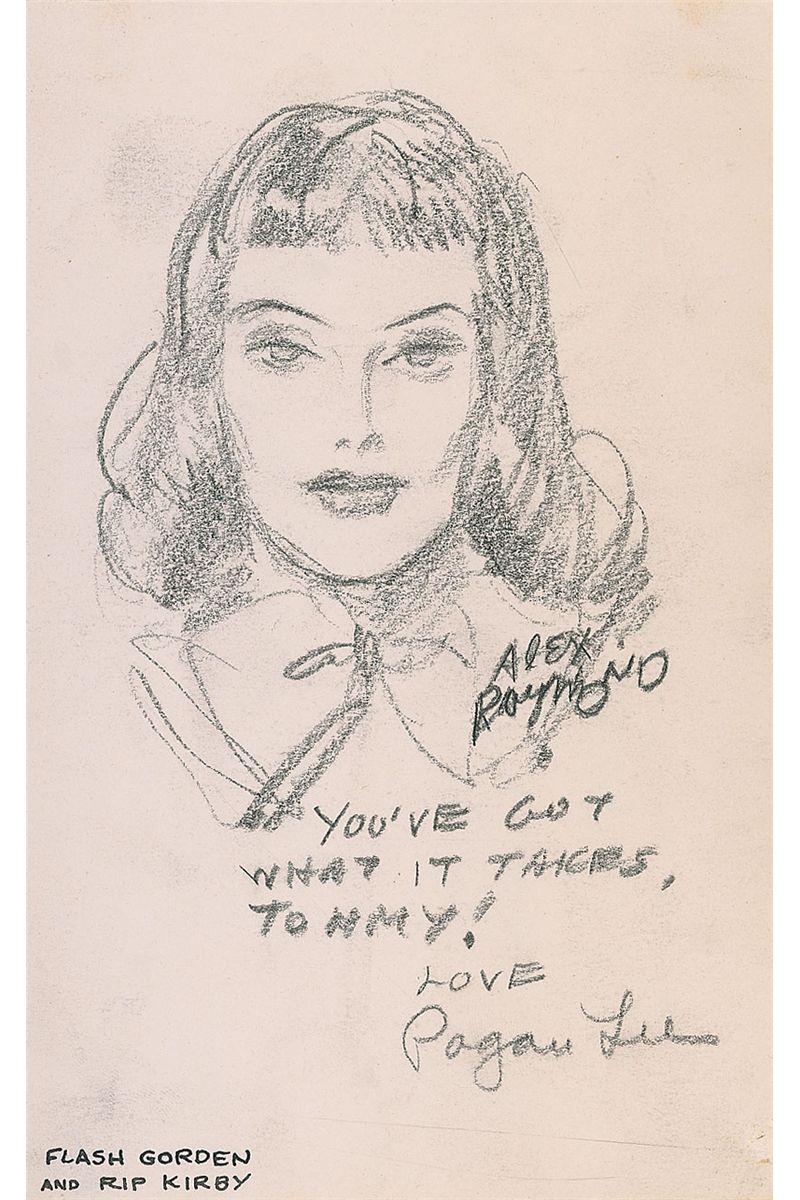 ALEX
RAYMOND
YOU'VE GOT
WHAT IT TAKES,
TOMMY!
LOVE
Pagan Lee
FLASH GORDEN
AND RIP KIRBY